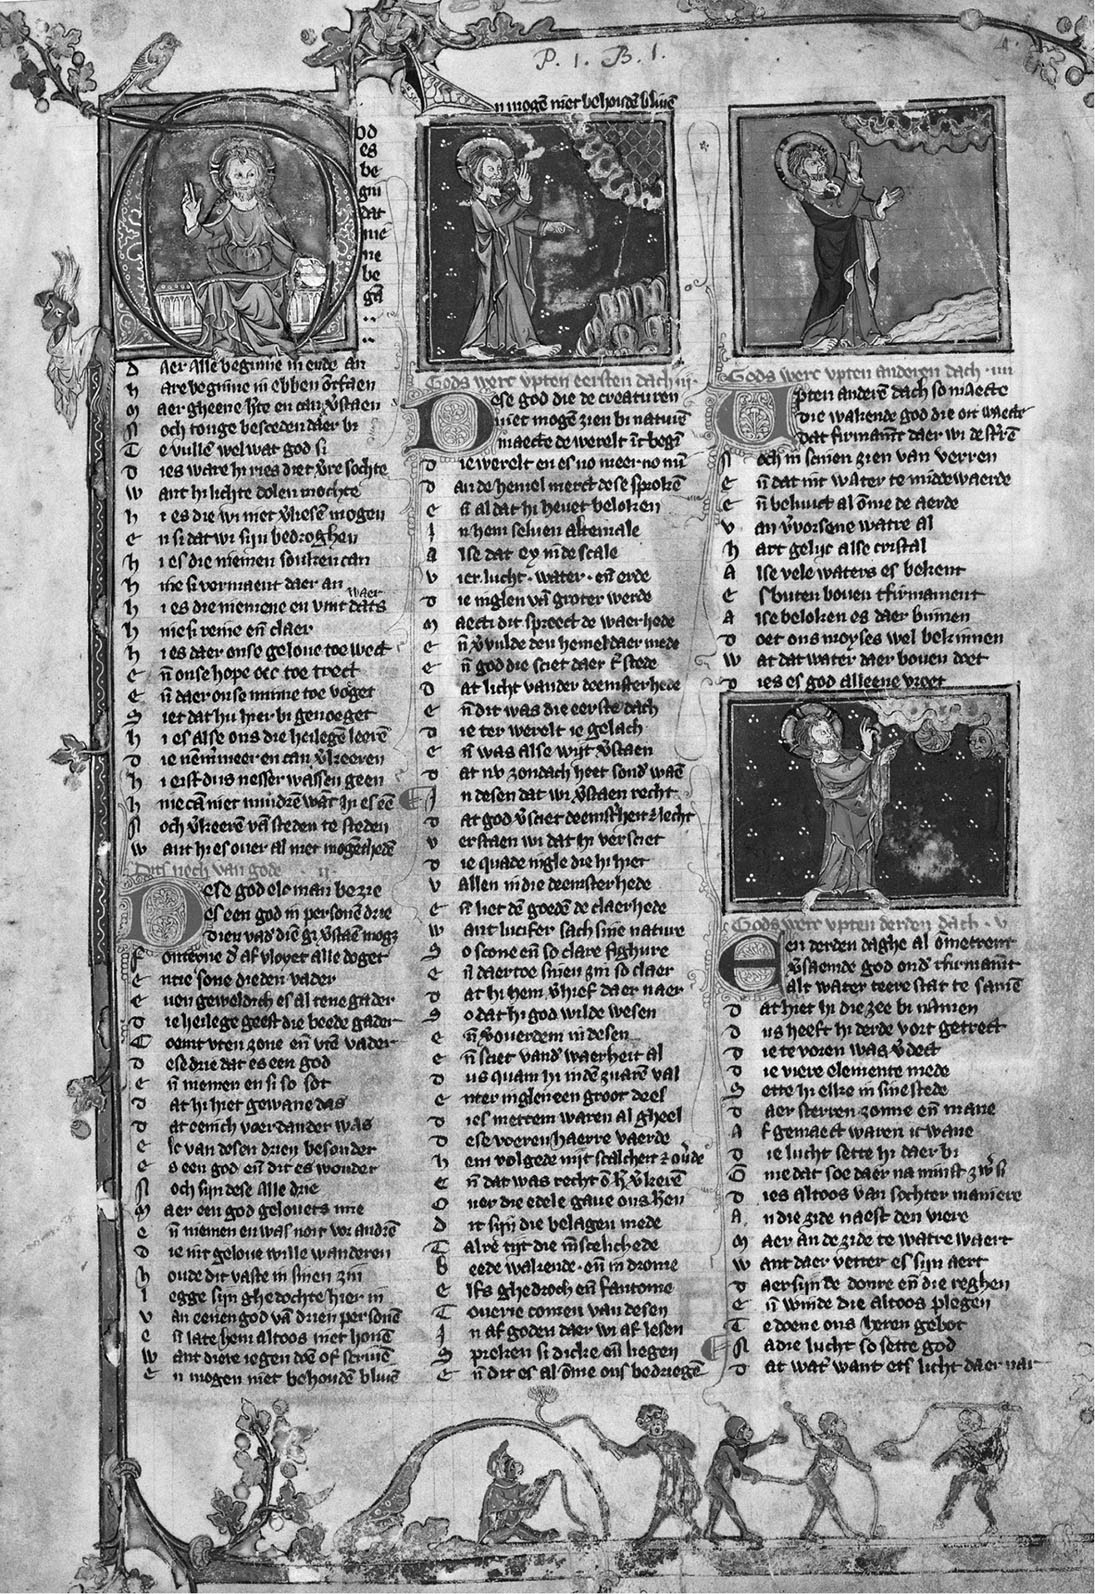 P. 1. B. 1.
od
es
be
gin
dat
nie
ne
be
gā
D aer alle beginne in ende an
h are beginne in ebben ontfaen
M aer gheene hte en can v̄staen
N och tonge besceden daer bi
T e vullē wel wat god si
D ies ware hi ries diet v̄re sochte
W ant hi lichte dolen mochte
h i es die wi niet v̄liesē mogen
E n si dat wi sijn bedroghen
h i es die niemen souken can
h ine si vermaent daer an
waer
h i es die niemene en vint dats
h ine si reine en̄ claer
h i es daer onse geloue toe wect
E n̄ onse hope occ toe trect
E n̄ daer onse minne toe voget
S iet dat hu hier bi genoeget
h i es alse ons die heilegē leeren
D ie nēmmeer en can v̄keeren
h i eist dus nesser wassen geen
h ine cā niet mindrē wāt hi es eē
N och v̄keerē vā steden te steden
W ant hi es ouer al met mogēthedē
Dits noch van gode . ij .
D ese god elc man bezie
es een god in personē drie
D ien vad' diē gi v̄staen mogt
F onteyne d' af vloyet alle doget
E ntie sone die den vader
E uen geweldich es al tene gader
D ie heilege geest die beede gader
C oemt vten zone en̄ vtē vader
D ese drie dat es een god
E n̄ niemen en si so sot
D at hi hiet gewane das
D at eenich voer dander was
E lc van desen drien besonder
E s een god en̄ dit es wonder
N och sijn dese alle drie
M aer een god gelouets mie
E n̄ niemen en was noit vor andrē
D ie in't geloue wille wanderen
h oude dit vaste in sinen zin
L egge sijn ghedochte hier in
V an eenen god vā drien personē
E n̄ late hem altoos met honē
W ant die ie iegen doē of scriuē
E n mogen niet behoudē bliuē
E n mogē niet behoudē bliuē
Gods werc vpten eersten dach . iij .
D ese god die de creaturen
niet mogē zien bi naturē
maecte de werelt īt begī
D ie werelt en es no meer no mī
D an de hemel merct dese sprokē
E n̄ al dat hi heuet beloken
I n hem seluen altemale
A lse dat ey in de scale
V ier . lucht . water . en̄ erde
D ie inglen vā groter werde
M aecti dit spreect de waerhede
E n̄ v̄vulde den hemel daer mede
E n̄ god die sciet daer t' stede
D at licht vander deemsterhede
E n̄ dit was die eerste dach
D ie ter werelt ie gelach
E n̄ was alse wijt v̄staen
D at nv zondach heet sond' waē
I n desen dat wi v̄staen recht
D at god v̄sciet deemst'heit ⁊ lecht
V erstaen wi dat hi versciet
D ie quade ingle die hi hiet
V allen in die deemsterhede
E n̄ liet dē goedē de claerhede
W ant lucifer sach sine nature
S o scone en̄ so clare fighure
E n̄ daer toe sinen zin so claer
D at hi hem v̄hief daer naer
S o dat hi god wilde wesen
E n̄ v̄ouerdem in desen
E n̄ sciet vand' waerheit al
D us quam hi in dē zuarē val
E nter inglen een groot deel
D ies mettem waren al gheel
D ese voeren haerre vaerde
h em volgede mit scalcheit ⁊ ou̇de
E n̄ dat was recht ō h v̄kerē
O uer die edele gaue ons hen̄
D it sijn die belagen mede
T alre tijt die mīscelichede
B eede wakende . en̄ in drome
E lfs ghedroch en̄ fantome
T ouerie comen van desen
I n afgoden daer wi af lesen
S preken si dicke en̄ liegen
E n̄ dit es al ōme ons bedriegē
Gods werc vpten anderen dach . iiij
V pten anderē dach so maecte
die wakende god die oit waecte
dat firmamīt daer wi de sterrē
N och in scinen zien van verren
E n̄ dat mit water te middewaerde
E n̄ behuut al ōme de aerde
V an v̄vorsene watre al
h art gelijc alse cristal
A lse vele waters es bekent
E s buten bouen tfirmament
A lse beloken es daer binnen
D oet ons moyses wel bekinnen
W at dat water daer bouen doet
D ies es god alleene vroet
Gods werc vpten derden dach . v
E en derden daghe al ōmetrent
v̄saemde god ond' tfirmamīt
alt water teere stat te samē
D at hiet hi die zee bi namen
D us heeft hi derde vort getrect
D ie te voren was v̄dect
D ie viere elemente mede
S ette hi elke in sine stede
D aer sterren zonne en̄ mane
A f gemaect waren ic wane
D ie lucht sette hi daer bi
O me dat soe daer na minst zw' si
D ies altoos van sochter maniere
A n die zide naest den viere
M aer an de zide te watre waert
W ant daer vetter es sijn aert
D aer sijn de donre en̄ die reghen
E n̄ winde die altoos plegen
T e doene ons heren gebot
N a die lucht so sette god
D at wat' want ets licht daer naer